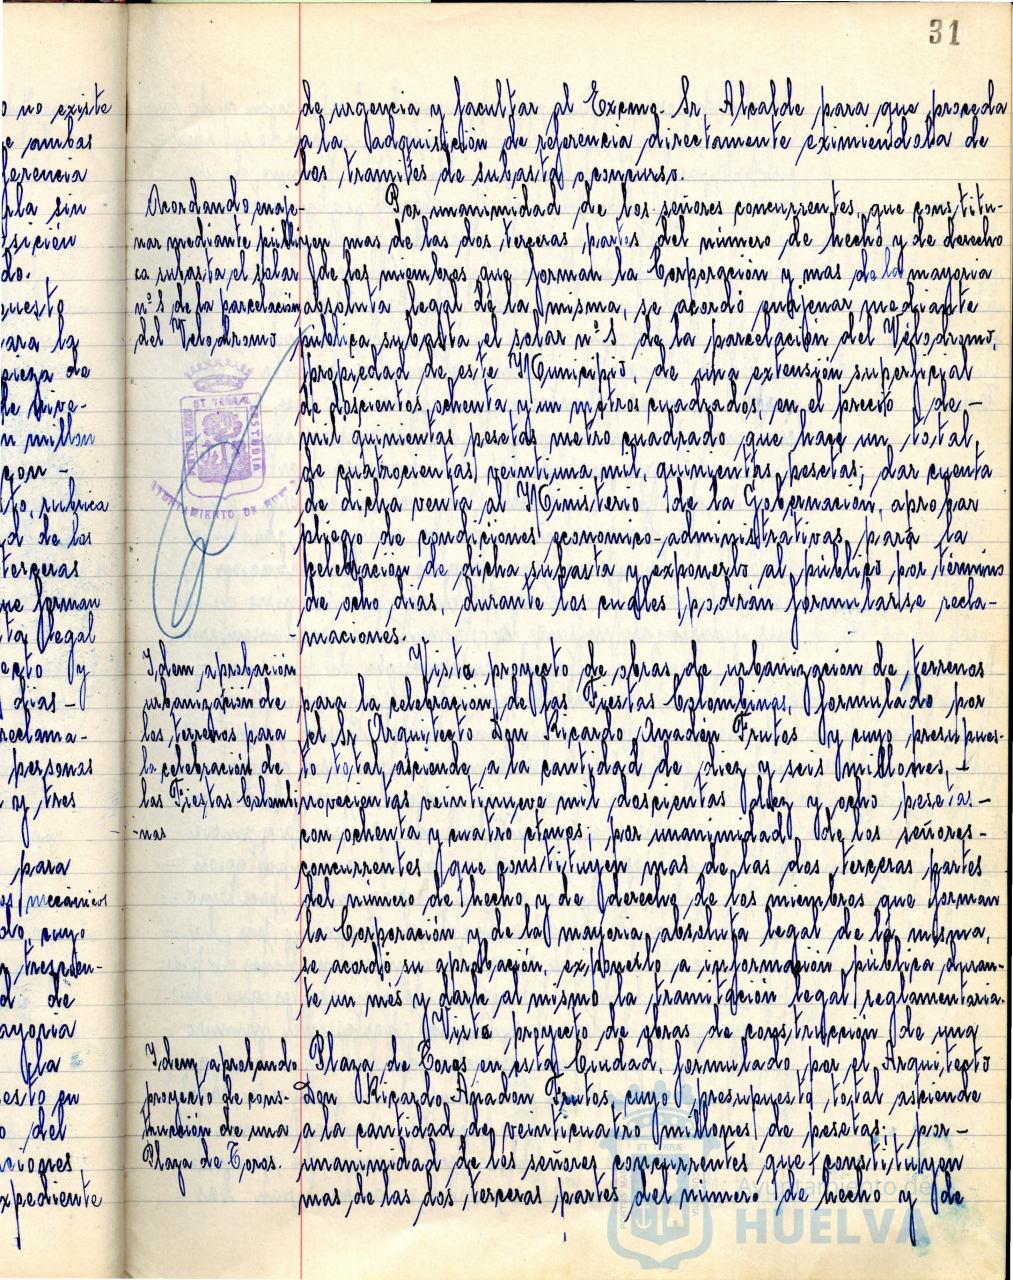 31
o no existe
e ambas
ferencia
sición
do.
uesto
ara la
pieza de
n millon
con -
to, rubrica
d de los
terceras
ue forman
ta legal
ecto y
dias -
reclama-
personas
y tres
para
os mecánicos
do cuyo
trescien-
d de
ayoria
la
esto en
o del
ciones,
xpediente
de urgencia y facultar al Excmo. Sr. Alcalde para que proceda
a la adquisición de referencia directamente eximiendola de
los tramites de subasta o concurso.
Acordando enaje-
nar mediante públi
ca subasta el solar
nº 8 de la parcelación
del Velodromo
Por unanimidad de los señores concurrentes, que constitu-
yen mas de las dos terceras partes del número de hecho y de derecho
de los miembros que forman la Corporación y mas de la mayoria
absoluta legal de la misma, se acordó enajenar mediante
pública subasta el solar nº 8 de la parcelación del Velodromo,
propiedad de este Municipio, de una extensión superficial
de doscientos ochenta y un metros cuadrados, en el precio de -
mil quinientas pesetas metro cuadrado que hace un total
de cuatrocientas veintiuna mil quinientas pesetas; dar cuenta
de dicha venta al Ministerio de la Gobernación, aprobar
pliego de condiciones economico-administrativas para la
celebración de dicha subasta y exponerlo al público por término
de ocho dias, durante los cuales podrán formularse recla-
maciones.
AYUNTAMIENTO DE HUELVA
Idem aprobación
urbanización de
los terrenos para
la celebración de
las Fiestas Colombi
-nas
Visto proyecto de obras de urbanización de terrenos
para la celebración de las Fiestas Colombinas, formulado por
el Sr. Arquitecto Don Ricardo Anadón Frutos y cuyo presupues-
to total asciende a la cantidad de diez y seis millones, -
novecientas veintinueve mil doscientas diez y ocho pesetas -
con ochenta y cuatro ctmos; por unanimidad de los señores -
concurrentes que constituyen mas de las dos terceras partes
del número de hecho y de derecho de los miembros que forman
la Corporación y de la mayoria absoluta legal de la misma,
se acordó su aprobación, exponerlo a información pública duran-
te un mes y darle al mismo la tramitación legal reglamentaria.
Idem aprobando
proyecto de cons-
trucción de una
Plaza de Toros.
Visto proyecto de obras de construcción de una
Plaza de Toros en esta Ciudad, formulado por el Arquitecto
Don Ricardo Anadon Frutos, cuyo presupuesto total asciende
a la cantidad de veinticuatro millones de pesetas; por -
unanimidad de los señores concurrentes que constituyen
mas de las dos terceras partes del número de hecho y de
Ayuntamiento de
HUELVA